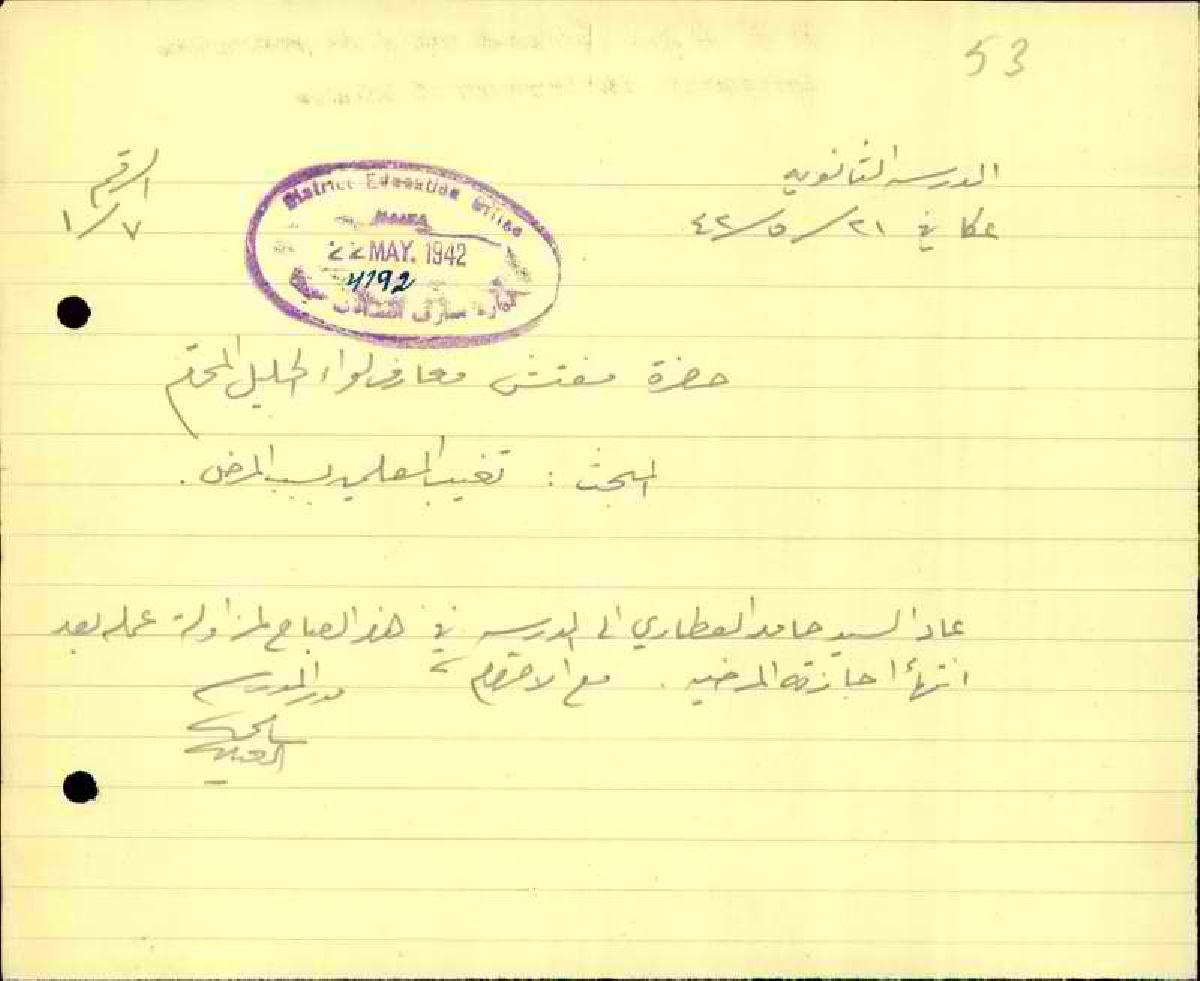 53
المدرسة الثانوية
عكا في ٢١/٥/٤٢
الرقم
١/٧
District Education Office
22 MAY. 1942
4792
حضرة مفتش معارف لواء الجليل المحترم
المبحث : تغيب المعلمين بسبب المرض .
عاد السيد حامد العطاري الى المدرسه في هذا الصباح لمزاولة عمله بعد
انتهاء اجازته المرضيه . مع الاحترام ،
مدير المدرسه